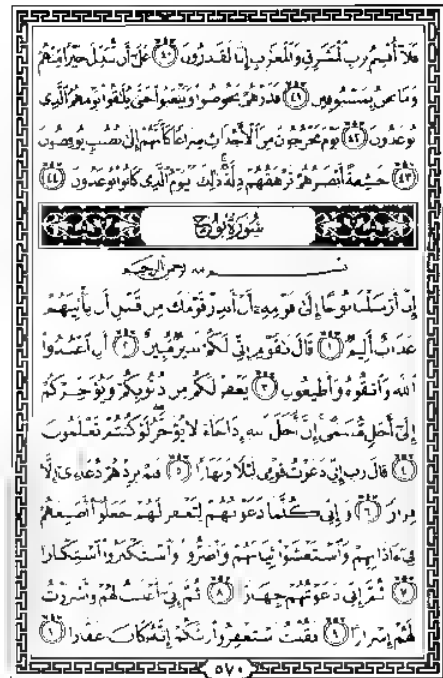 فَلَآ أُقْسِمُ بِرَبِّ ٱلْمَشَٰرِقِ وَٱلْمَغَٰرِبِ إِنَّا لَقَٰدِرُونَ ٤٠ عَلَىٰٓ أَن نُّبَدِّلَ خَيْرًا مِّنْهُمْ
وَمَا نَحْنُ بِمَسْبُوقِينَ ٤١ فَذَرْهُمْ يَخُوضُوا۟ وَيَلْعَبُوا۟ حَتَّىٰ يُلَٰقُوا۟ يَوْمَهُمُ ٱلَّذِى
يُوعَدُونَ ٤٢ يَوْمَ يَخْرُجُونَ مِنَ ٱلْأَجْدَاثِ سِرَاعًا كَأَنَّهُمْ إِلَىٰ نُصُبٍ يُوفِضُونَ
٤٣ خَٰشِعَةً أَبْصَٰرُهُمْ تَرْهَقُهُمْ ذِلَّةٌ ذَٰلِكَ ٱلْيَوْمُ ٱلَّذِى كَانُوا۟ يُوعَدُونَ ٤٤
سُورَةُ نُوحٍ
ٱلرَّحْمَٰنِ ٱلرَّحِيمِ
إِنَّآ أَرْسَلْنَا نُوحًا إِلَىٰ قَوْمِهِۦٓ أَنْ أَنذِرْ قَوْمَكَ مِن قَبْلِ أَن يَأْتِيَهُمْ
عَذَابٌ أَلِيمٌ ١ قَالَ يَٰقَوْمِ إِنِّى لَكُمْ نَذِيرٌ مُّبِينٌ ٢ أَنِ ٱعْبُدُوا۟
ٱللَّهَ وَٱتَّقُوهُ وَأَطِيعُونِ ٣ يَغْفِرْ لَكُم مِّن ذُنُوبِكُمْ وَيُؤَخِّرْكُمْ
إِلَىٰٓ أَجَلٍ مُّسَمًّى إِنَّ أَجَلَ ٱللَّهِ إِذَا جَآءَ لَا يُؤَخَّرُ لَوْ كُنتُمْ تَعْلَمُونَ
٤ قَالَ رَبِّ إِنِّى دَعَوْتُ قَوْمِى لَيْلًا وَنَهَارًا ٥ فَلَمْ يَزِدْهُمْ دُعَآءِىٓ إِلَّا
فِرَارًا ٦ وَإِنِّى كُلَّمَا دَعَوْتُهُمْ لِتَغْفِرَ لَهُمْ جَعَلُوٓا۟ أَصَٰبِعَهُمْ
فِىٓ ءَاذَانِهِمْ وَٱسْتَغْشَوْا۟ ثِيَابَهُمْ وَأَصَرُّوا۟ وَٱسْتَكْبَرُوا۟ ٱسْتِكْبَارًا
٧ ثُمَّ إِنِّى دَعَوْتُهُمْ جِهَارًا ٨ ثُمَّ إِنِّىٓ أَعْلَنتُ لَهُمْ وَأَسْرَرْتُ
لَهُمْ إِسْرَارًا ٩ فَقُلْتُ ٱسْتَغْفِرُوا۟ رَبَّكُمْ إِنَّهُۥ كَانَ غَفَّارًا ١٠
٥٧٠